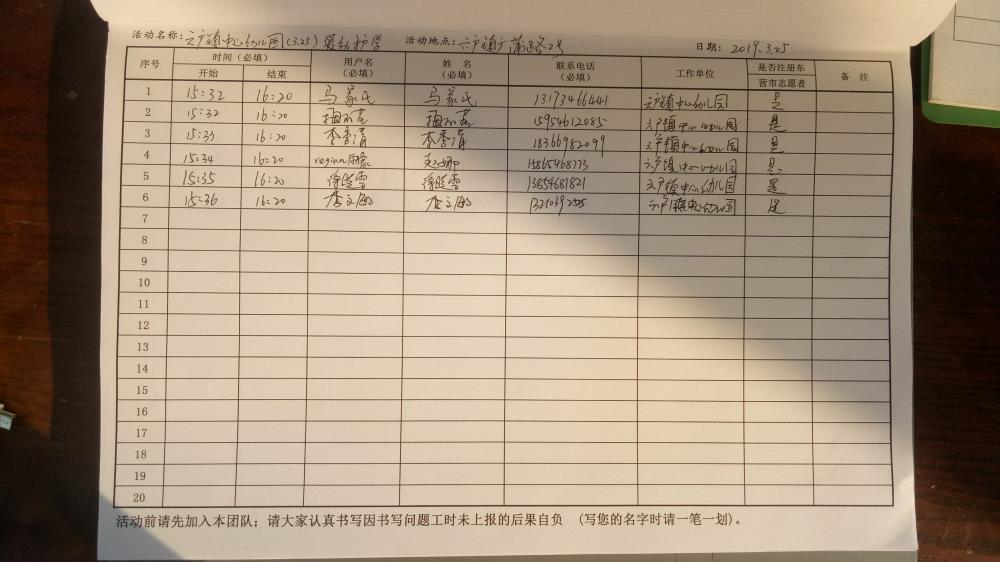 活动名称：六户镇中心幼儿园(3.25)爱幼护学 活动地点：六户镇广蒲路2号 日期：2019.3.25
序号 时间（必填） 用户名（必填） 姓 名（必填） 联系电话（必填） 工作单位 是否注册东营市志愿者 备 注
开始 结束
1 15:32 16:20 马家民 马家民 13173466441 六户镇中心幼儿园 是
2 15:32 16:20 15954612085 六户镇中心幼儿园 是
3 15:33 16:20 李秀清 李秀清 18366982099 六户镇中心幼儿园 是
4 15:34 16:20 15865468773 六户镇中心幼儿园 是
5 15:35 16:20 徐晓雪 徐晓雪 13854681821 六户镇中心幼儿园 是
6 15:36 16:20 13210392505 六户镇中心幼儿园 是
7
8
9
10
11
12
13
14
15
16
17
18
19
20
活动前请先加入本团队；请大家认真书写因书写问题工时未上报的后果自负 （写您的名字时请一笔一划）。